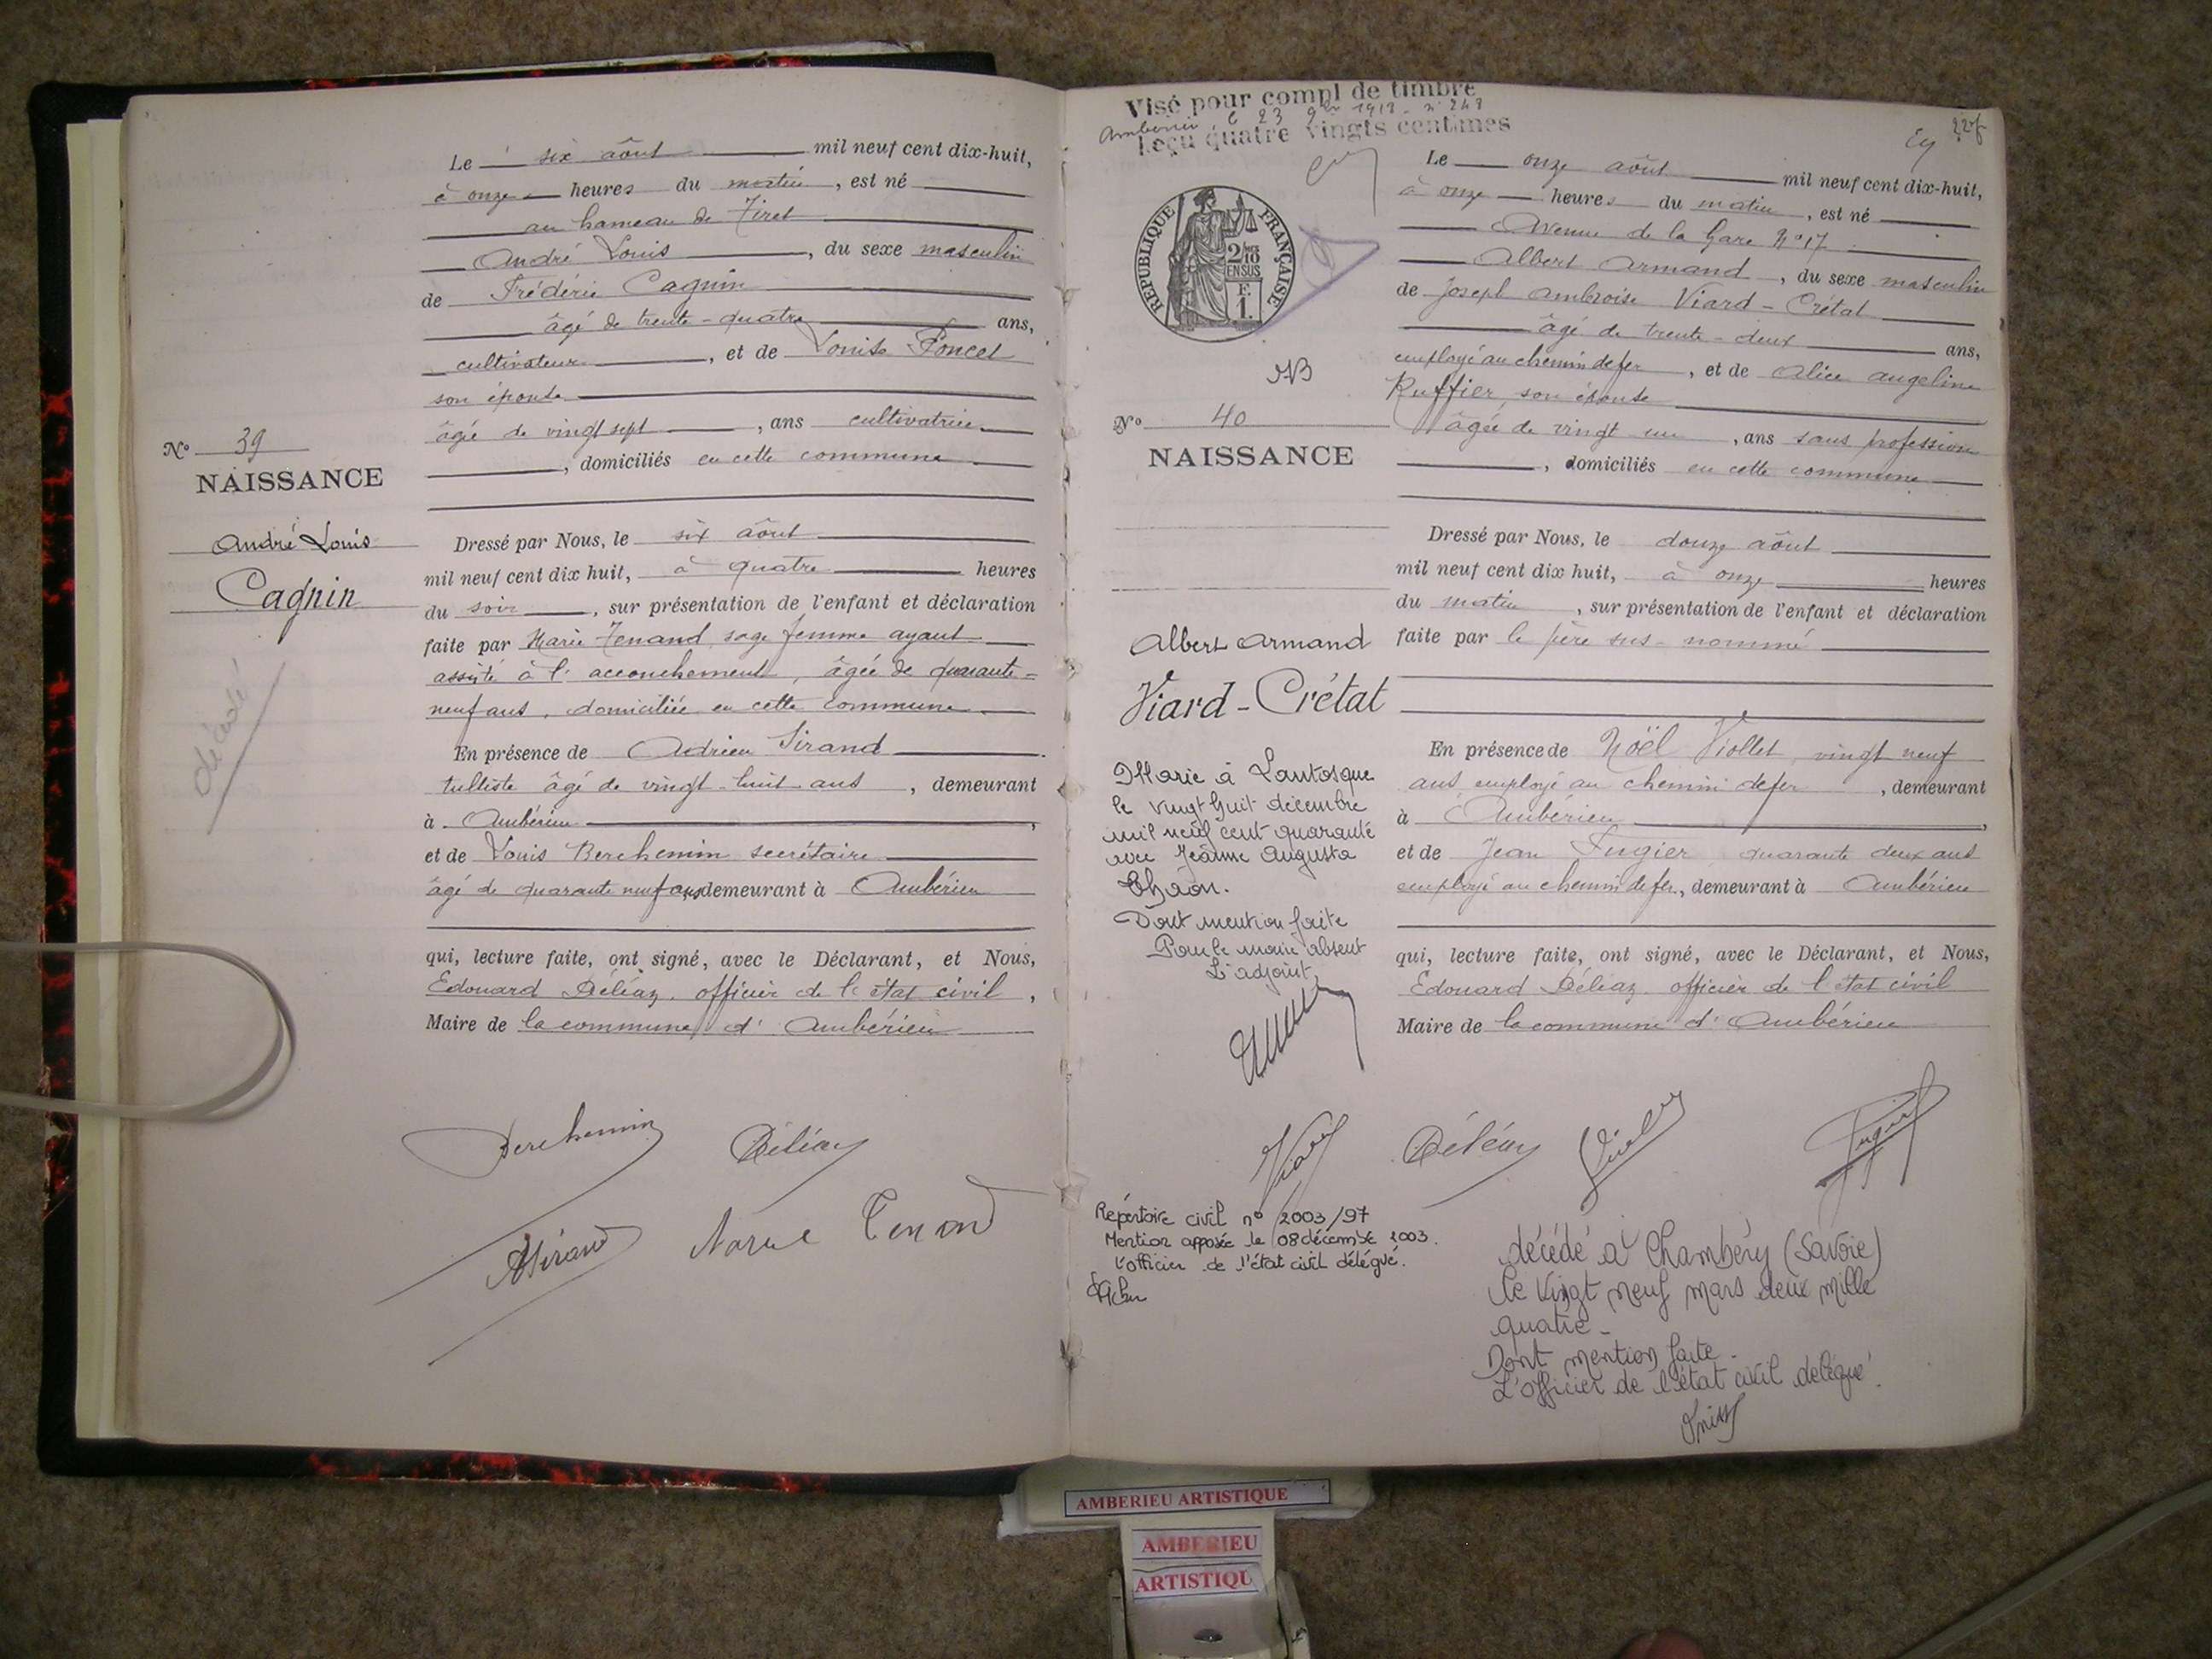 Le six août mil neuf cent dix-huit,
à onze heures du matin, est né
au hameau de Tiret
André Louis, du sexe masculin
de Frédéric Cagnin
âgé de trente-quatre ans,
cultivateur, et de Louise Poncet
son épouse
âgée de vingt sept, ans cultivatrice
, domiciliés en cette commune
N° 39
NAISSANCE
André Louis
Cagnin
décédé
Dressé par Nous, le six août
mil neuf cent dix huit, à quatre heures
du soir, sur présentation de l'enfant et déclaration
faite par Marie Tenand, sage femme ayant
assisté à l'accouchement, âgée de quarante-
neuf ans, domiciliée en cette commune.
En présence de Adrien Sirand
tulliste âgé de vingt-huit ans, demeurant
à Ambérieu,
et de Louis Berchemin secrétaire
âgé de quarante neuf ans demeurant à Ambérieu
qui, lecture faite, ont signé, avec le Déclarant, et Nous,
Edouard Déliaz, officier de l'état civil,
Maire de la commune d'Ambérieu
Berchemin Déliaz
ASirand Marie Tenand
Visé pour compl de timbre
Ambérieu le 23 9bre 1918 n° 248
Reçu quatre vingts centimes
RÉPUBLIQUE FRANÇAISE
2/10
EN SUS
F.
1.
N° 40
NAISSANCE
Albert Armand
Viard-Crétat
Marié à Lantosque
le vingt huit décembre
mil neuf cent quarante
avec Jeanne Augusta
Thaon.
Dont mention faite
Pour le maire absent
L'adjoint,
Le onze août mil neuf cent dix-huit,
à onze heures du matin, est né
Avenue de la Gare N°17
Albert Armand, du sexe masculin
de Joseph Ambroise Viard-Crétat
âgé de trente-deux ans,
employé au chemin de fer, et de Alice Angeline
Ruffier, son épouse
âgée de vingt un, ans sans profession
, domiciliés en cette commune
Dressé par Nous, le douze août
mil neuf cent dix huit, à onze heures
du matin, sur présentation de l'enfant et déclaration
faite par le père sus-nommé
En présence de Noël Viollet, vingt neuf
ans, employé au chemin de fer, demeurant
à Ambérieu,
et de Jean Fugier quarante deux ans
employé au chemin de fer, demeurant à Ambérieu
qui, lecture faite, ont signé, avec le Déclarant, et Nous,
Edouard Déliaz officier de l'état civil
Maire de la commune d'Ambérieu
Viard Déliaz Viollet Fugier
Répertoire civil n° 2003/97
Mention apposée le 08 décembre 2003.
L'officier de l'état civil délégué.
décédé à Chambéry (Savoie)
le vingt neuf mars deux mille
quatre.
Dont mention faite.
L'officier de l'état civil délégué.
AMBERIEU ARTISTIQUE
AMBERIEU
ARTISTIQU